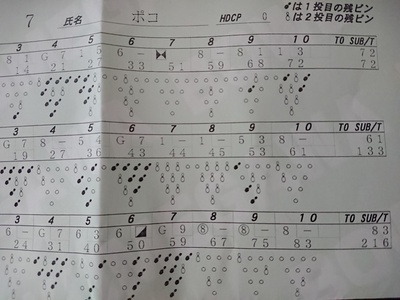 7 氏名 ボコ HDCP 0
●は1投目の残ピン
は2投目の残ピン
3 4 5 6 7 8 9 10 TO SUB/T
8 1 G 7 1 5 6 - 8 - 8 1 1 3 72
14 21 27 33 51 59 68 72 72
3 4 5 6 7 8 9 10 TO SUB/T
G 7 8 - 5 4 G 7 1 - 1 - 5 3 8 - 61
19 27 36 43 44 45 53 61 133
3 4 5 6 7 8 9 10 TO SUB/T
6 - G 7 6 3 6 G 9 ⑧ - ⑧ - 8 - 83
24 31 40 50 59 67 75 83 216